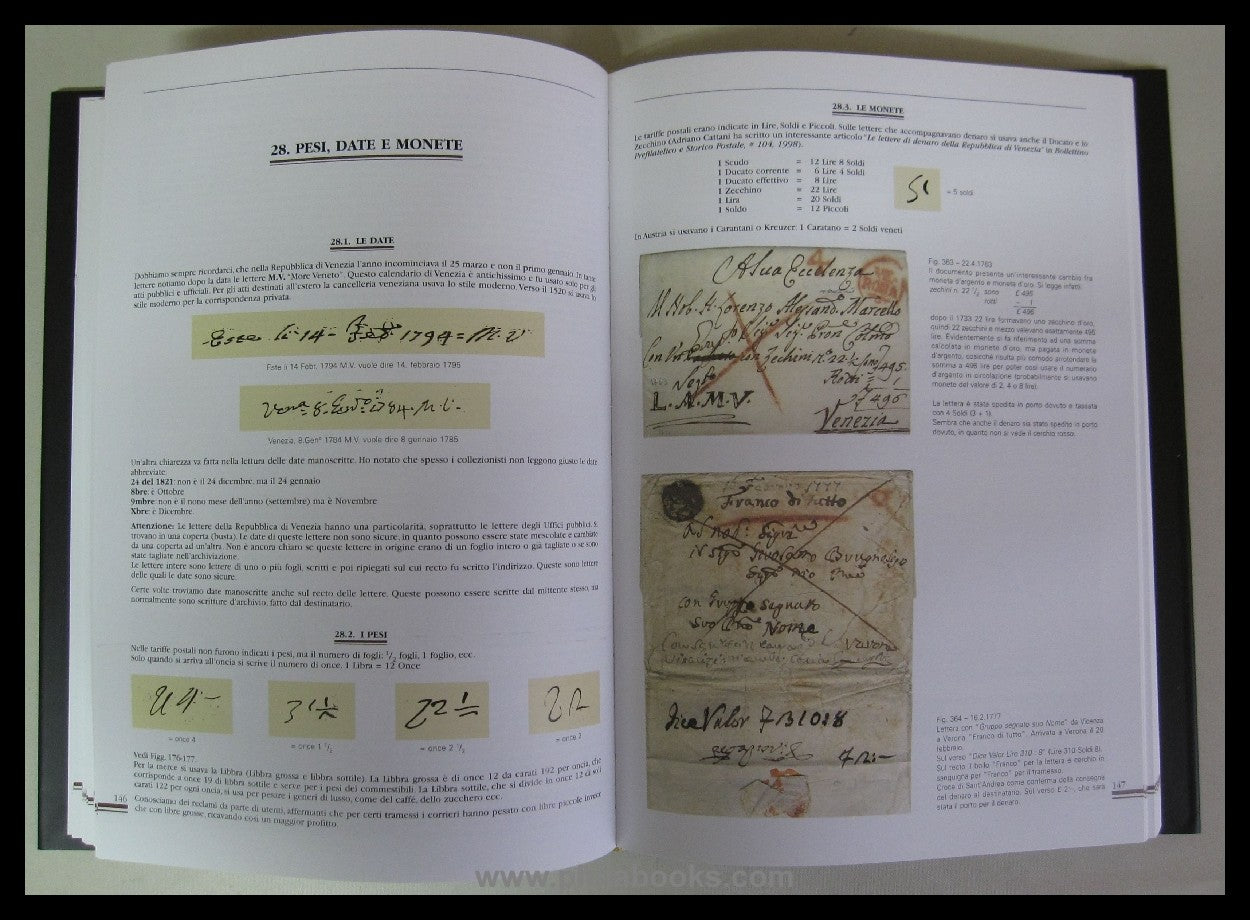 28. PESI, DATE E MONETE
28.1. LE DATE
Dobbiamo sempre ricordarci, che nella Repubblica di Venezia l'anno incominciava il 25 marzo e non il primo gennaio. In tante
lettere notiamo dopo la data le lettere M.V. "More Veneto". Questo calendario di Venezia è antichissimo e fu usato solo per gli
atti pubblici e ufficiali. Per gli atti destinati all'estero la cancelleria veneziana usava lo stile moderno. Verso il 1520 si usava lo
stile moderno per la corrispondenza privata.
Este li 14 Febr. 1794 = M. V
Este li 14 Febr. 1794 M.V. vuole dire 14. febbraio 1795
Venezia, 8.Genº 1784 M.V. vuole dire 8 gennaio 1785
Un'altra chiarezza va fatta nella lettura delle date manoscritte. Ho notato che spesso i collezionisti non leggono giusto le date
abbreviate:
24 del 1821: non è il 24 dicembre, ma il 24 gennaio
8bre: è Ottobre
9mbre: non è il nono mese dell'anno (settembre) ma è Novembre
Xbre: è Dicembre.
Attenzione: Le lettere della Repubblica di Venezia hanno una particolarità, soprattutto le lettere degli Uffici pubblici. Si
trovano in una coperta (busta). Le date di queste lettere non sono sicure, in quanto possono essere state mescolate e cambiate
da una coperta ad un'altra. Non è ancora chiaro se queste lettere in origine erano di un foglio intero o già tagliate o se sono
state tagliate nell'archiviazione.
Le lettere intere sono lettere di uno o più fogli, scritti e poi ripiegati sul cui recto fu scritto l'indirizzo. Queste sono lettere
delle quali le date sono sicure.
Certe volte troviamo date manoscritte anche sul recto delle lettere. Queste possono essere scritte dal mittente stesso, ma
normalmente sono scritture d'archivio, fatto dal destinatario.
28.2. I PESI
Nelle tariffe postali non furono indicati i pesi, ma il numero di fogli: 1/2 fogli, 1 foglio, ecc.
solo quando si arriva all'oncia si scrive il numero di once. 1 Libra = 12 Once
= once 4
= once 1 1/2
= once 2 1/2
= once 2
Vedi Figg. 176-177.
Per la merce si usava la Libbra (Libbra grossa e libbra sottile). La Libbra grossa è di once 12 da carati 192 per oncia, che
corrisponde a once 19 di libbra sottile e serve per i pesi dei commestibili. La Libbra sottile, che si divide in once 12 di soli
carati 122 per ogni oncia, si usa per pesare i generi di lusso, come del caffè, dello zucchero ecc.
Conosciamo dei reclami da parte di utenti, affermanti che per certi tramessi i corrieri hanno pesato con libre piccole invece
che con libre grosse, ricavando così un maggior profitto.
146
28.3. LE MONETE
Le tariffe postali erano indicate in Lire, Soldi e Piccoli. Sulle lettere che accompagnavano denaro si usava anche il Ducato e lo
Zecchino (Adriano Cattani ha scritto un interessante articolo "Le lettere di denaro della Repubblica di Venezia" in Bollettino
Prefilatelico e Storico Postale, # 104, 1998).
1 Scudo = 12 Lire 8 Soldi
1 Ducato corrente = 6 Lire 4 Soldi
1 Ducato effettivo = 8 Lire
1 Zecchino = 22 Lire
1 Lira = 20 Soldi
1 Soldo = 12 Piccoli
= 5 soldi
In Austria si usavano i Carantani o Kreuzer. 1 Caratano = 2 Soldi veneti
A Sua Eccelenza
Lorenzo Alessand. Marcello
495
L. A. M. V.
496
Venezia
Fig. 363 – 22.4.1763
Il documento presenta un'interessante cambio fra
moneta d'argento e moneta d'oro. Si legge infatti:
zechini n. 22 1/2 sono £ 495
rotti – 1
£ 496
dopo il 1733 22 lire formavano uno zecchino d'oro,
quindi 22 zecchini e mezzo valevano esattamente 495
lire. Evidentemente si fa riferimento ad una somma
calcolata in monete d'oro, ma pagata in monete
d'argento, cosicché risulta più comodo arrotondare la
somma a 496 lire per poter così usare il numerario
d'argento in circolazione (probabilmente si usavano
monete del valore di 2, 4 o 8 lire).
La lettera è stata spedita in porto dovuto e tassata
con 4 Soldi (3 + 1).
Sembra che anche il denaro sia stato spedito in porto
dovuto, in quanto non si vede il cerchio rosso.
Franco di tutto
con Gruppo Segnato
Suo Nome
Dica Valor
Fig. 364 – 16.2.1777
Lettera con "Gruppo segnato suo Nome" da Vicenza
a Verona "Franco di tutto". Arrivata a Verona il 20
febbraio.
Sul verso "Dica Valor Lire 310 : 8" (Lire 310 Soldi 8).
Sul recto il bollo "Franco" per la lettera e cerchio in
sanguigna per "Franco" per il tramesso.
Croce di Sant'Andrea come conferma della consegna
del denaro al destinatario. Sul verso £ 2:-, che sarà
stata il porto per il denaro.
147